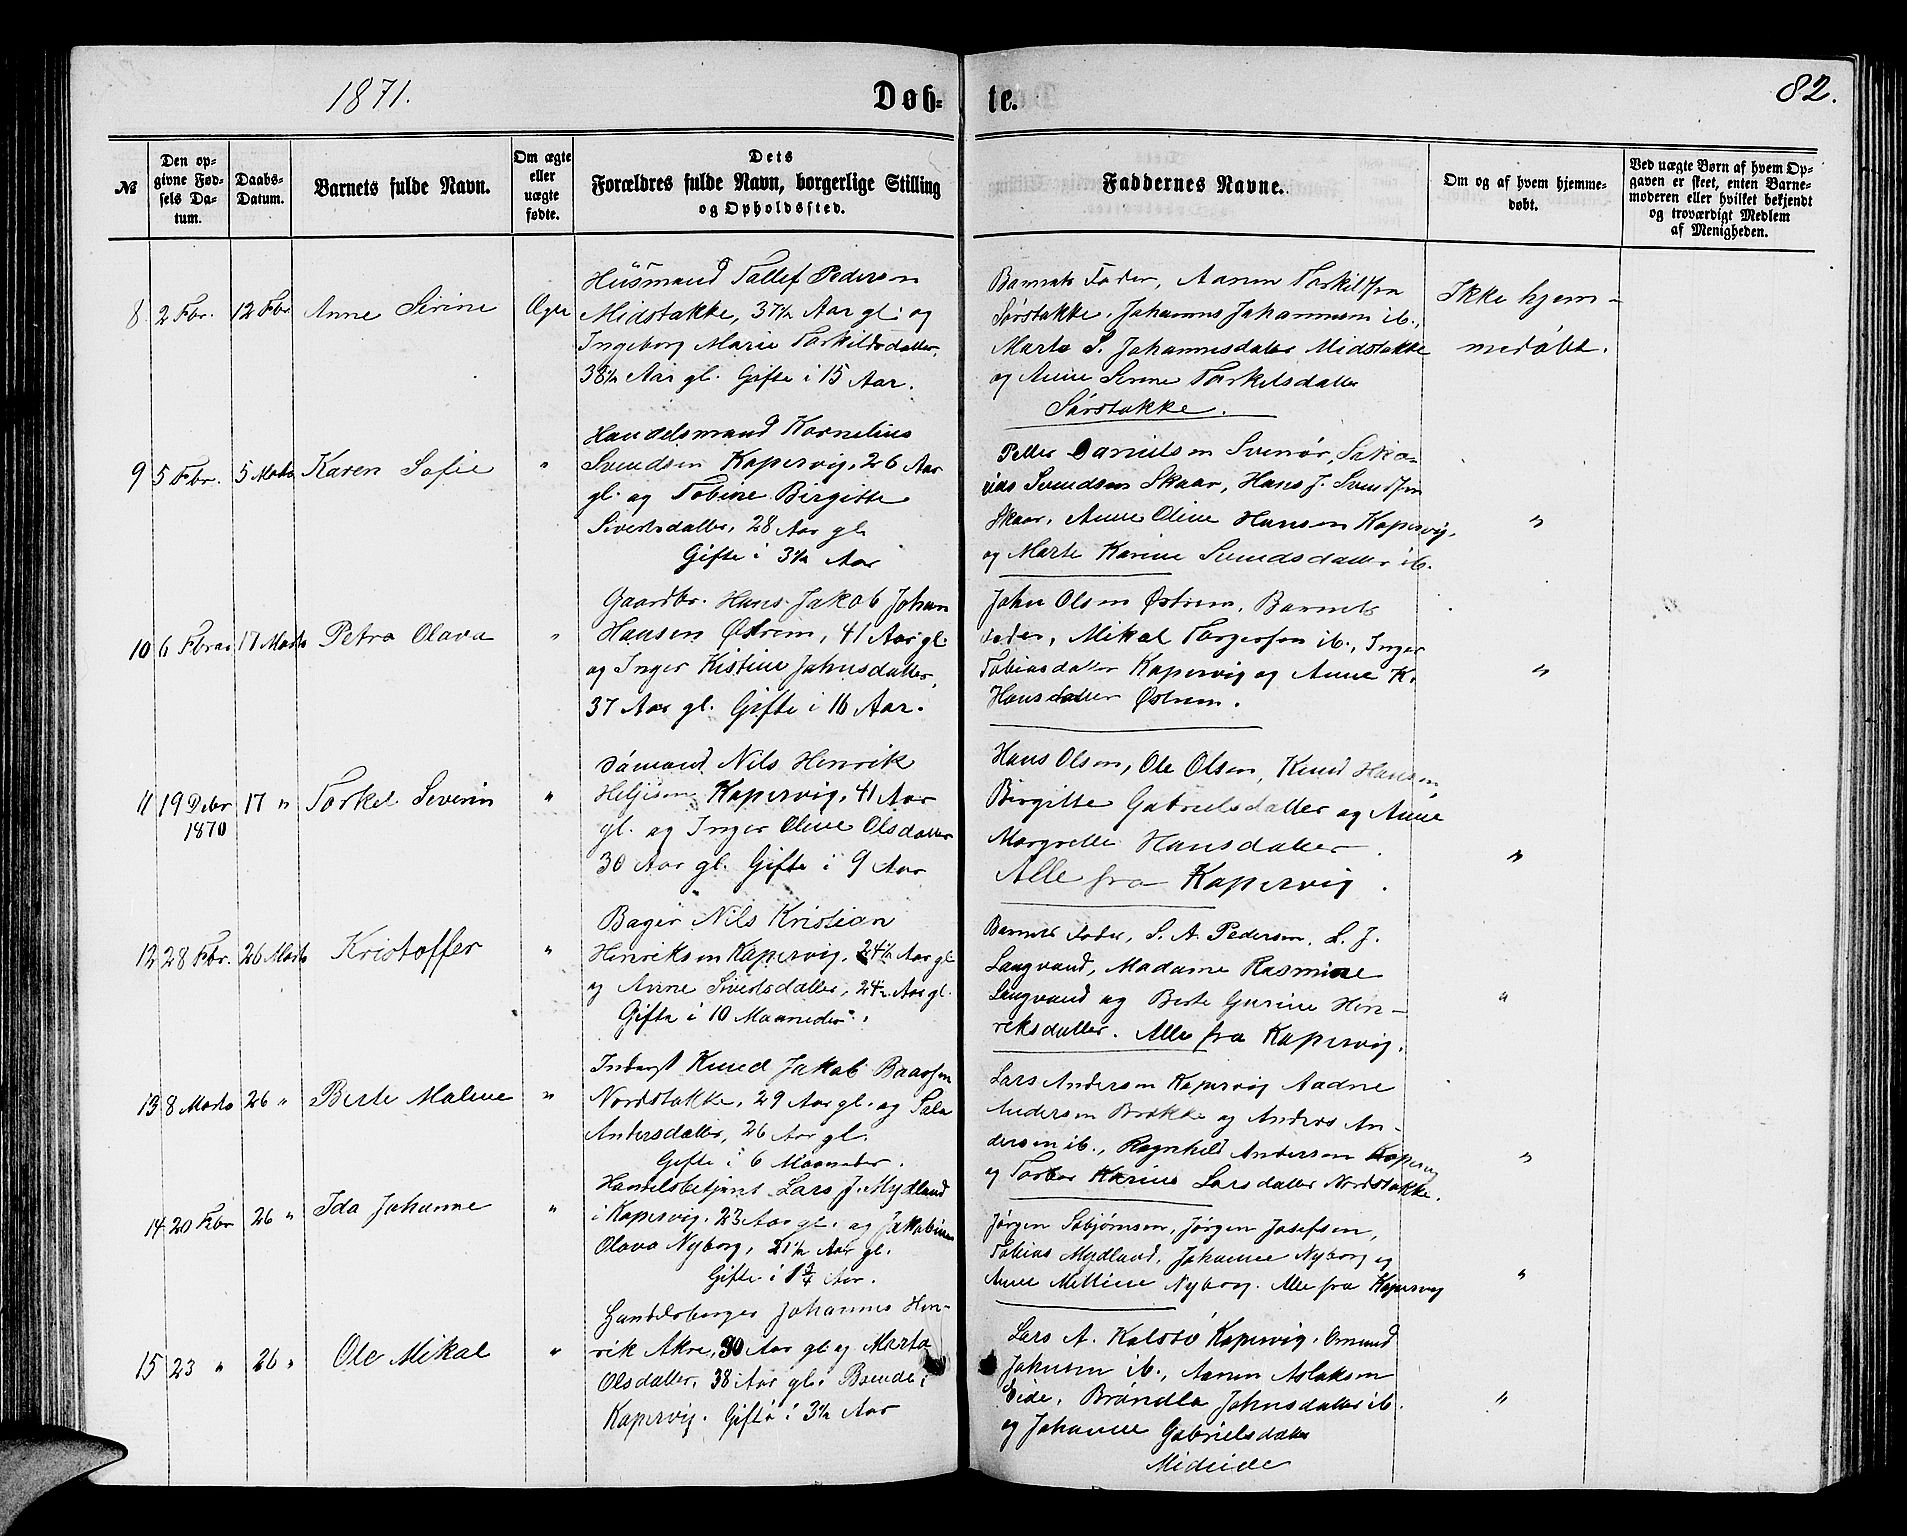 1871.
Døb-
te.
82.
№
Den op-
givne Fød-
sels Da-
tum.
Daabs-
Datum.
Barnets fulde Navn.
Om ægte
eller
uægte
fødte.
Dets
Forældres fulde Navn, borgerlige Stilling
og Opholdssted.
Faddernes Navne.
Om og af hvem hjemme-
døbt.
Ved uægte Børn af hvem Op-
gaven er skeet, enten Barne-
moderen eller hvilket bekjendt
og troværdigt Medlem
af Menigheden.
8 2 Fbr. 12 Fbr Anne Serine Ægte
Husmand Tallef Pedersen
Midstakke, 37½ Aar gl. og
Ingeborg Marie Torkildsdatter,
38½ Aar gl. Gifte i 15 Aar.
Barnets Fader, Aanen Torkilsen
Sørstakke, Johannes Johannesen ib.,
Marta S. Johannesdatter Midstakke
og Anne Serine Torkelsdatter
Sørstakke.
Ikke hjem-
medøbt.
9 5 Fbr. 5 Marts Karen Sofie "
Handelsmand Kornelius
Svendsen Kapervig, 26 Aar
gl. og Tobine Birgitte
Sivertsdatter, 28 Aar gl.
Gifte i 3½ Aar
Petter Danielsen Svenør, Saka-
rias Svendsen Skaar, Hans J. Svendsen
Skaar, Anne Oline Hansen Kapervig,
og Marte Karine Svendsdatter ib.
"
10 6 Fbrar 17 Marts Petra Olava "
Gaardbr. Hans Jakob Johan
Hansen Østrem, 41 Aar gl.
og Inger Kistine Johnsdatter,
37 Aar gl. Gifte i 16 Aar.
John Olsen Østrem, Barnets
Fader, Mikal Torgersen ib., Inger
Tobiasdatter Kapervig og Anne K.
Hansdatter Østrem.
"
11 19 Debr 17 " Torkel Severin "
1870
Sømand Nils Henrik
Heljesen Kapervig, 41 Aar
gl. og Inger Oline Olsdatter
30 Aar gl. Gifte i 9 Aar
Hans Olsen, Ole Olsen, Knud Hansen,
Birgitte Gabrielsdatter og Anne
Margrethe Hansdatter.
Alle fra Kapervig.
"
12 28 Fbr. 26 Marts Kristoffer "
Bager Nils Kristian
Henriksen Kapervig, 24½ Aar gl
og Anne Sivertsdatter, 24½ Aar gl.
Gifte i 10 Maaneder.
Barnets Fader, S. A. Pedersen, L. J.
Langvand, Madame Rasmine
Langvand og Berte Gurine Hen-
reksdatter. Alle fra Kapervig.
"
13 8 Marts 26 " Berte Malene "
Inderst Knud Jakob Baarsen
Nordstakke, 29 Aar gl. og Sala
Andersdatter, 26 Aar gl.
Gifte i 6 Maaneder.
Lars Andersen Kapervig Aadne
Andersen Brekke og Anders An-
dersen ib., Ragnhild Andersen Kapervig
og Torbor Karine Larsdatter Nordstakke.
"
14 20 Fbr 26 " Ida Johanne "
Handelsbetjent Lars J. Mydland
i Kapervig, 23 Aar gl. og Jakobine
Olava Nyborg, 21½ Aar gl.
Gifte i 1¾ Aar.
Jørgen Sebjørnsen, Jørgen Josefsen,
Tobias Mydland, Johanne Nyborg og
Anne Mettine Nyborg. Alle fra Kapervig
"
15 23 " 26 " Ole Mikal "
Handelsborger Johannes Hen-
rik Akre, 30 Aar gl. og Marta
Olsdatter, 38 Aar gl. Boende i
Kapervig. Gifte i 3½ Aar
Lars A. Kalstø Kapervig, Omund
Johnsen ib., Aanen Aslaksen
Eide, Brøndla Johnsdatter ib.
og Johanne Gabrielsdatter
Mideide
"